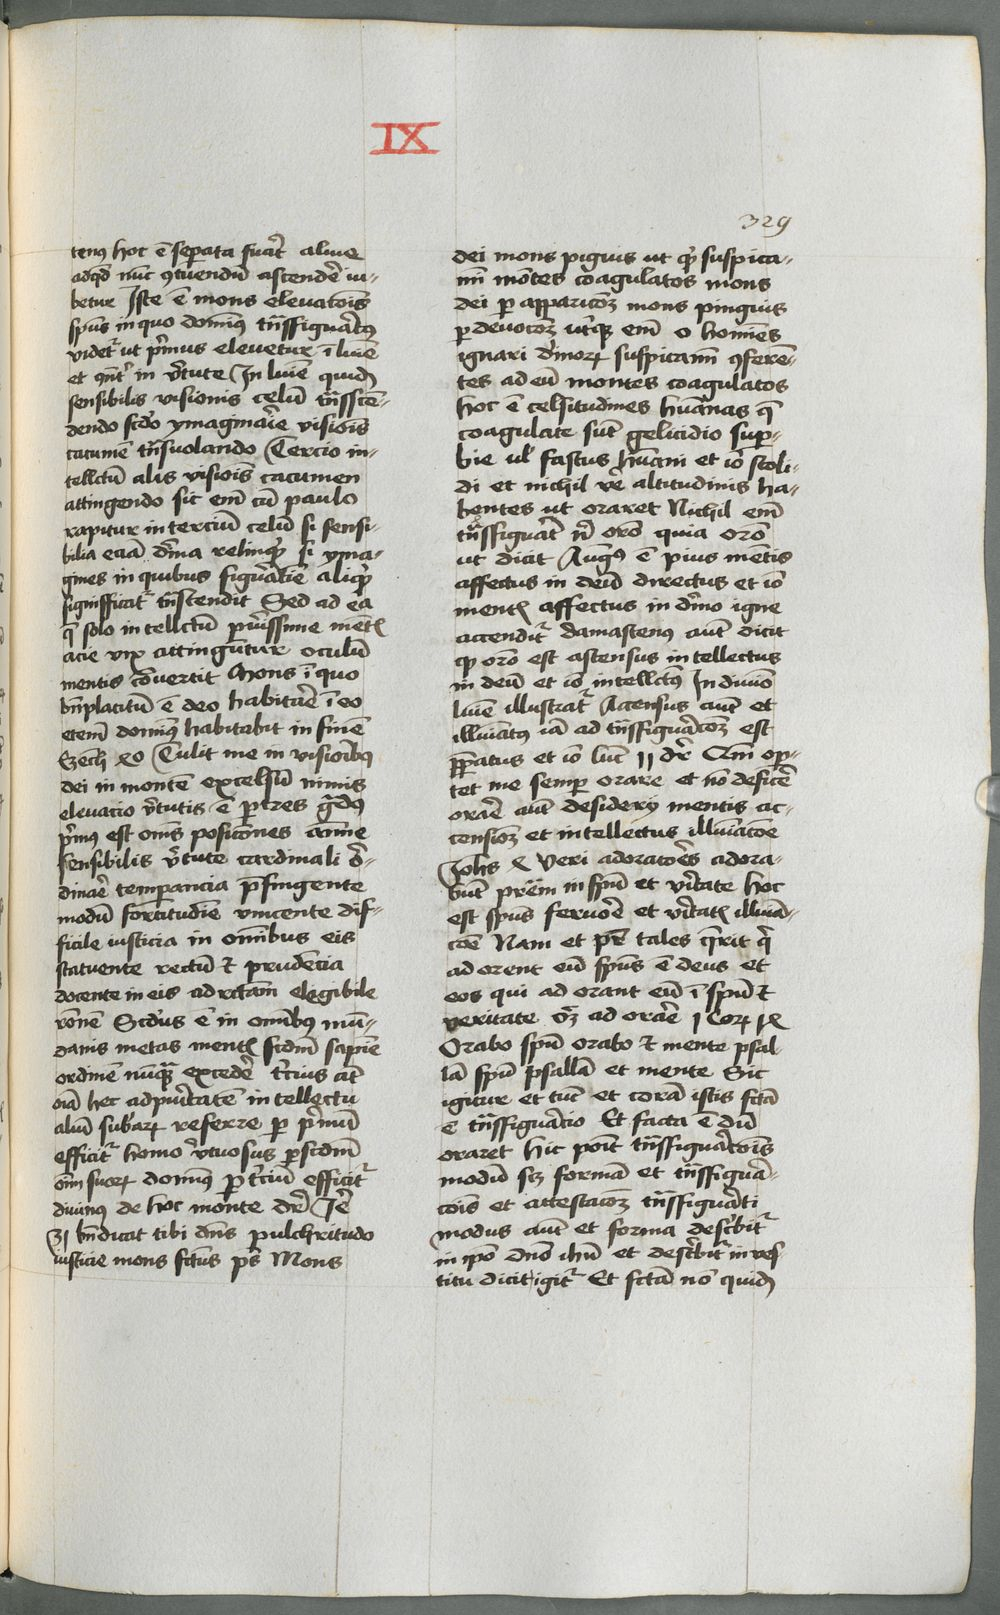 IX
329
tenus hoc ē sepata fuāt alme
adqd nūc ꝯtuendū ascendē iu-
betur Iste ē mons elevatōis
spūs in quo domīus tn̄sfiguātus
videtᷓ ut pᷓmus elevetur ī luīe
et in vᷓtute In luīe quidē
sensibilis visionis celū tn̄sscē-
dendo scdo ymagināīe visiōis
cacumē tn̄suolando Tercio in-
tellctū alis visiōis cacumen
attingendo sic em̄ cū paulo
rapitur in terciū celū si sensi-
bilia eciā relinqᷓ si yma-
gines in quibus figuᷓatīe aliqᷓ
significatᷓ tn̄scendit Sed ad ea
q̄ solo intellctū puᷓissime mētꝭ
acie vix attingūtur oculū
mentis cōvertit Mons ī quo
bn̄placitū ē deo habitāē ī eo
etem̄ domīus habitabit in finē
Ezech xo Tulit me in visiōibꝰ
dei in montē excelsū nimis
elevacio vᷓtutis ē p tres gᷓdꝰ
pᷓmus est om̄s positōnes anīe
sensibilis vᷓtute cardinali oᷓ-
dināē temperancia pᷓfingente
modū fortitudīe vincente dif-
ficile iusticia in om̄ibus eis
statuente rectū ⁊ prudēcia
docente in eis ad rctam elegibile
rōnē Scdus ē in om̄ibꝰ mū-
danis metas mentꝭ scdm sapīe
ordinē nūqᷓ excedē tᷓcius āt
oīa hec ad puīᷓtatē intellectu
aliū subaꝝ referre p pᷓmū
efficitᷓ homo vᷓtuosus p scdm
om̄ suoꝝ domīus p tᷓciū efficitᷓ
divinus de hoc monte drᷓ Ieᷓ
31 bn̄dicat tibi dn̄s pulchritudo
iusticie mons sctus pᷤ Mons
dei mons pīguis ut qᷓ suspica-
mī mōtes coagulatos mons
dei p apparicōꝫ mons pinguis
p devocōꝫ utᷓqꝫ em̄ o homīes
ignari suspicamī ꝯferen-
tes ad eū montes coagulatos
hoc ē celsitudines hūanas q̄
coagulate sūt gelicidio supᷓ-
bie ul fastus hūani et iō stoli-
di et nichil vē altitudinis ha-
bentes ut oraret Nichil em̄
tn̄sfiguᷓat nᷓ orō quia orō
ut dicit Augꝰ ē pius mētis
affectus in deū directus et iō
mentꝭ affectus in dīno igne
accenditᷓ damascenus aut dicit
ꝙ orō est ascensus intellectus
in deū et iō intellctus In divīo
luīe illustratᷓ Accensus aut et
illuīatus iā ad tn̄sfiguᷓacōꝫ est
ꝑpatus et iō luc̄ 11 drᷓ Qm̄ opᷓ-
tet me semp orare et nō deficē
orāē aut desidery mentis ac-
censioꝫ et intellectus illuīacōe
Iohs x Veri adoratōes adora-
būt pr̄em in spū et vᷓitate hoc
est spūs fervoē et vᷓitatꝭ illuīa-
cōe Nam et pr̄ tales qᷓrit qᷓ
adorent eū spūs ē deus et
eos qui adorant eū ī spū ⁊
veritate oꝫ adorāē 1 Corꝭ ix
Orabo spū orabo ⁊ mente psal
lā spū psallā et mente Sic
igitur et tuc et corā istis fctā
ē tn̄sfiguᷓacio Et facta ē dū
oraret hic pōit tn̄sfiguᷓatōis
modū scꝫ formā et tn̄sfiguᷓa-
cōis et attestacōꝫ tn̄sfiguᷓati
modus aut et forma describitᷓ
in ipō dn̄o ihū et describitᷓ in ves-
titu dicit igitᷓ Et fctā nō quidē